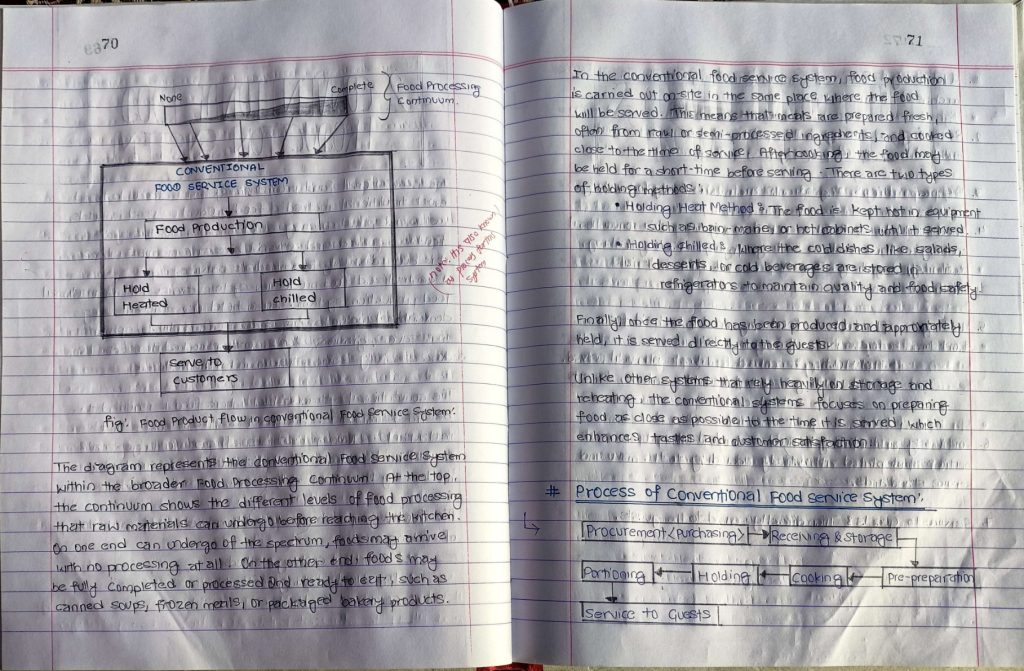 70
None
Complete
Food Processing
Continuum.
CONVENTIONAL
FOOD SERVICE SYSTEM
Food Production
Hold
Heated
Hold
chilled
Serve to
customers
Note: this also known
as
system
fig: Food Product flow in conventional Food Service System:
The diagram represents the conventional Food Service System
within the broader Food Processing Continuum. At the top,
the continuum shows the different levels of food processing
that raw materials can undergo before reaching the kitchen.
On one end can undergo of the spectrum, foods may arrive
with no processing at all. On the other end, foods may
be fully completed or processed and ready to eat, such as
canned soups, frozen meals, or packaged bakery products.
71
In the conventional food service system, food production
is carried out on-site in the same place where the food
will be served. This means that meals are prepared fresh,
often from raw or semi-processed ingredients, and cooked
close to the time of service. After cooking, the food may
be held for a short-time before serving. There are two types
of holding methods:
• Holding Heat Method: The food is kept hot in equipment
such as bain-maries or hot cabinets until it served.
• Holding chilled: Where the cold dishes, like salads,
desserts, or cold beverages are stored in
refrigerators to maintain quality and food safety.
Finally, once the food has been produced and
held, it is served directly to the guests.
Unlike other systems that rely heavily on storage and
reheating, the conventional systems focuses on preparing
food as close as possible to the time it is served, which
enhances tastes and customer satisfaction.
# Process of Conventional Food Service System:
Procurement <Purchasing> Receiving & Storage
Portioning Holding Cooking Pre-preparation
Service to Guests